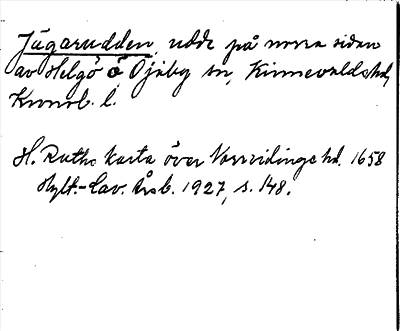 Jägarudden, udde på norra sidan
av Helgö i Öjaby sn, Kinnevalds hd,
Kronob. l.
H. Ruths karta över Norrvidinge hd. 1658
Hylt.-Cav. Årsb. 1927, s. 148.